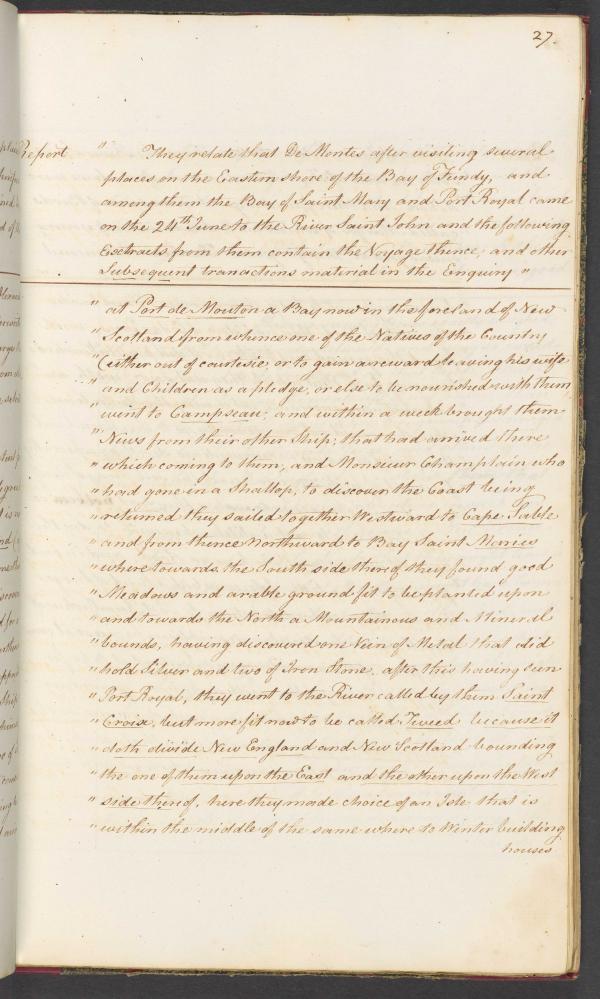 27.
Report
" They relate that De Montes after visiting several
places on the Eastern shore of the Bay of Fundy, and
among them the Bay of Saint Mary and Port Royal came
on the 24th June to the River Saint John and the following
Esctracts from them contain the Voyage thence, and other
Subsequent transactions material in the Enquiry "
" at Port de Mouton a Bay now in the foreland of New
" Scotland from whence one of the Natives of the Country
" (either out of courtesie, or to gain a reward leaving his wife
" and Children as a pledge, or else to be nourished with them
" went to Campseau; and within a week brought them
" News from their other Ship; that had arrived there
" which coming to them, and Monsieur Champlain who
" had gone in a Shallop, to discover the Coast being
" returned they sailed together Westward to Cape Sable
" and from thence Northward to Bay Saint Maries
" where towards the South side thereof they found good
" Meadows and arable ground fit to be planted upon
" and towards the North a Mountainous and Mineral
" bounds, having discovered one Vein of Metal that did
" hold Silver and two of Iron Stone, after this having seen
" Port Royal, they went to the River called by them Saint
" Croix, but more fit now to be called Tweed because it
" doth divide New England and New Scotland bounding
" the one of them upon the East and the other upon the West
" side thereof, here they made choice of an Isle that is
" within the middle of the same where to Winter building
houses